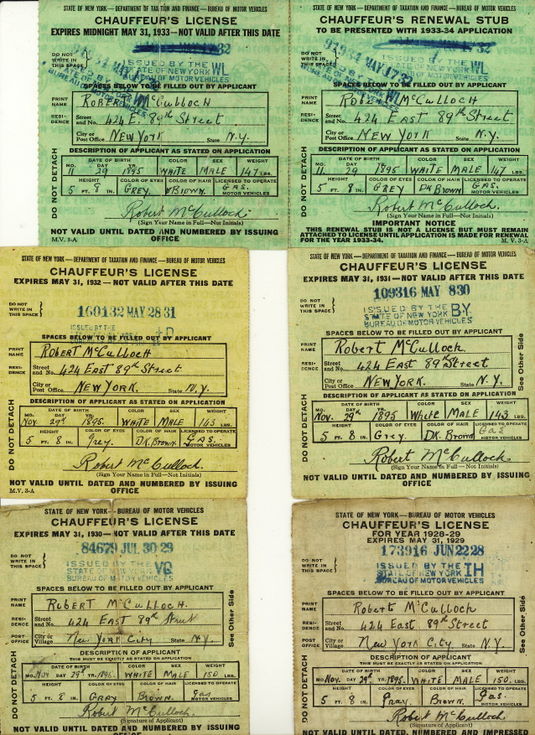 STATE OF NEW YORK—DEPARTMENT OF TAXATION AND FINANCE—BUREAU OF MOTOR VEHICLES
CHAUFFEUR'S LICENSE
EXPIRES MIDNIGHT MAY 31, 1933—NOT VALID AFTER THIS DATE
DO NOT WRITE IN THIS SPACE
ISSUED BY THE
STATE OF NEW YORK WL
BUREAU OF MOTOR VEHICLES
SPACES BELOW TO BE FILLED OUT BY APPLICANT
PRINT NAME ROBERT McCULLOCH
RESIDENCE Street and No. 424 E. 89th Street
City or Post Office NEW YORK State N.Y.
DESCRIPTION OF APPLICANT AS STATED ON APPLICATION
DATE OF BIRTH COLOR SEX WEIGHT
MO. 11 DAY 29 YR. 1895 WHITE MALE 147 LBS.
HEIGHT COLOR OF EYES COLOR OF HAIR LICENSED TO OPERATE
5 FT. 8 IN. GREY. BROWN. GAS. MOTOR VEHICLES
Robert McCulloch.
(Sign Your Name in Full—Not Initials)
DO NOT DETACH
NOT VALID UNTIL DATED AND NUMBERED BY ISSUING OFFICE
M.V. 3-A
STATE OF NEW YORK—DEPARTMENT OF TAXATION AND FINANCE—BUREAU OF MOTOR VEHICLES
CHAUFFEUR'S RENEWAL STUB
TO BE PRESENTED WITH 1933-34 APPLICATION
DO NOT WRITE IN THIS SPACE
ISSUED BY THE
STATE OF NEW YORK WL
BUREAU OF MOTOR VEHICLES
SPACES BELOW TO BE FILLED OUT BY APPLICANT
PRINT NAME ROBERT McCULLOCH
RESIDENCE Street and No. 424 EAST 89th STREET
City or Post Office NEW YORK State N.Y.
DESCRIPTION OF APPLICANT AS STATED ON APPLICATION
DATE OF BIRTH COLOR SEX WEIGHT
MO. 11 DAY 29 YR. 1895 WHITE MALE 147 LBS.
HEIGHT COLOR OF EYES COLOR OF HAIR LICENSED TO OPERATE
5 FT. 8 IN. GREY DK BROWN GAS. MOTOR VEHICLES
Robert McCulloch.
(Sign Your Name in Full—Not Initials)
DO NOT DETACH
IMPORTANT NOTICE
THIS RENEWAL STUB IS NOT A LICENSE BUT MUST REMAIN
ATTACHED TO LICENSE UNTIL APPLICATION IS MADE FOR RENEWAL
FOR THE YEAR 1933-34. M.V. 3-A
STATE OF NEW YORK—DEPARTMENT OF TAXATION AND FINANCE—BUREAU OF MOTOR VEHICLES
CHAUFFEUR'S LICENSE
EXPIRES MAY 31, 1932—NOT VALID AFTER THIS DATE
DO NOT WRITE IN THIS SPACE
160132 MAY 28 31
ISSUED BY THE
SPACES BELOW TO BE FILLED OUT BY APPLICANT
PRINT NAME ROBERT McCULLOCH
Street and No. 424 EAST 89th Street
City or Post Office NEW YORK. State N.Y.
DESCRIPTION OF APPLICANT AS STATED ON APPLICATION
DATE OF BIRTH COLOR SEX WEIGHT
MO. NOV. DAY 29th YR. 1895. WHITE MALE 143 LBS.
HEIGHT COLOR OF EYES COLOR OF HAIR LICENSED TO OPERATE
5 FT. 8 IN. Grey. DK. Brown. GAS. MOTOR VEHICLES
Robert McCulloch.
(Sign Your Name in Full—Not Initials)
DO NOT DETACH
NOT VALID UNTIL DATED AND NUMBERED BY ISSUING OFFICE
M.V. 3-A
STATE OF NEW YORK—DEPARTMENT OF TAXATION AND FINANCE—BUREAU OF MOTOR VEHICLES
CHAUFFEUR'S LICENSE
EXPIRES MAY 31, 1931—NOT VALID AFTER THIS DATE
DO NOT WRITE IN THIS SPACE
109316 MAY 830
ISSUED BY THE BY
STATE OF NEW YORK
BUREAU OF MOTOR VEHICLES
SPACES BELOW TO BE FILLED OUT BY APPLICANT
PRINT NAME Robert McCulloch.
Street and No. 424 EAST 89th Street
City or Post Office NEW YORK. State N.Y.
DESCRIPTION OF APPLICANT AS STATED ON APPLICATION
DATE OF BIRTH COLOR SEX WEIGHT
MO. Nov. DAY 29th YR. 1895 White MALE 143 LBS.
HEIGHT COLOR OF EYES COLOR OF HAIR LICENSED TO OPERATE
5 FT. 8 IN. Grey DK. Brown Gas MOTOR VEHICLES
Robert McCulloch.
(Sign Your Name in Full—Not Initials)
DO NOT DETACH
See Other Side
NOT VALID UNTIL DATED AND NUMBERED BY ISSUING OFFICE
STATE OF NEW YORK—BUREAU OF MOTOR VEHICLES
CHAUFFEUR'S LICENSE
EXPIRES MAY 31, 1930—NOT VALID AFTER THIS DATE
DO NOT WRITE IN THIS SPACE
84679 JUL 30-29
ISSUED BY THE
STATE OF NEW YORK VQ
BUREAU OF MOTOR VEHICLES
SPACES BELOW TO BE FILLED OUT BY APPLICANT
PRINT NAME ROBERT McCULLOCH.
RESIDENCE Street and No. 424 EAST 89th Street
POST OFFICE City or Village New York City State N.Y.
DESCRIPTION OF APPLICANT
THIS MUST BE EXACTLY AS STATED ON APPLICATION
DATE OF BIRTH COLOR SEX WEIGHT
MO. Nov DAY 29th YR. 1895. WHITE MALE 150 LBS.
HEIGHT COLOR OF EYES COLOR OF HAIR LICENSED TO OPERATE
5 FT. 8 IN. GRAY BROWN. Gas MOTOR VEHICLES
Robert McCulloch
(Signature of Applicant)
DO NOT DETACH
See Other Side
NOT VALID UNTIL DATED AND NUMBERED BY ISSUING
STATE OF NEW YORK—BUREAU OF MOTOR VEHICLES
CHAUFFEUR'S LICENSE
FOR YEAR 1928-29
EXPIRES MAY 31, 1929
DO NOT WRITE IN THIS SPACE
173916 JUN 22 28
ISSUED BY THE
STATE OF NEW YORK IH
BUREAU OF MOTOR VEHICLES
SPACES BELOW TO BE FILLED OUT BY APPLICANT
PRINT NAME Robert McCulloch
RESIDENCE Street and No. 424 EAST 89th Street
POST OFFICE City or Village New York City State N.Y.
DESCRIPTION OF APPLICANT
THIS MUST BE EXACTLY AS STATED ON APPLICATION
DATE OF BIRTH COLOR SEX WEIGHT
MO. Nov. DAY 29th YR. 1895. WHITE MALE 150 LBS.
HEIGHT COLOR OF EYES COLOR OF HAIR LICENSED TO OPERATE
5 FT. 8 IN. Gray Brown. Gas. MOTOR VEHICLES
Robert McCulloch
(Signature of Applicant)
DO NOT DETACH
See Other Side
NOT VALID UNTIL DATED, NUMBERED AND IMPRESSED